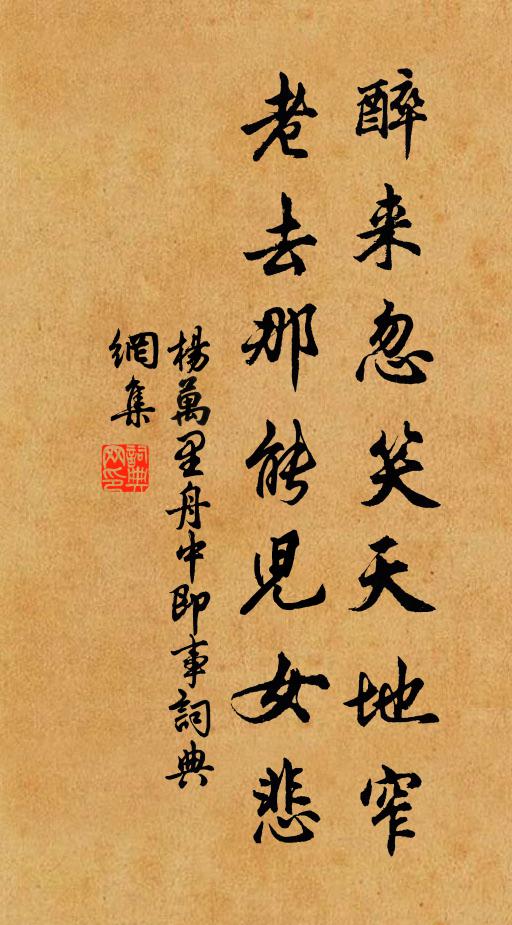 醉来忽笑天地窄
老去那能兒女悲
楊萬里舟中即事詞典
網集
詞典
网印